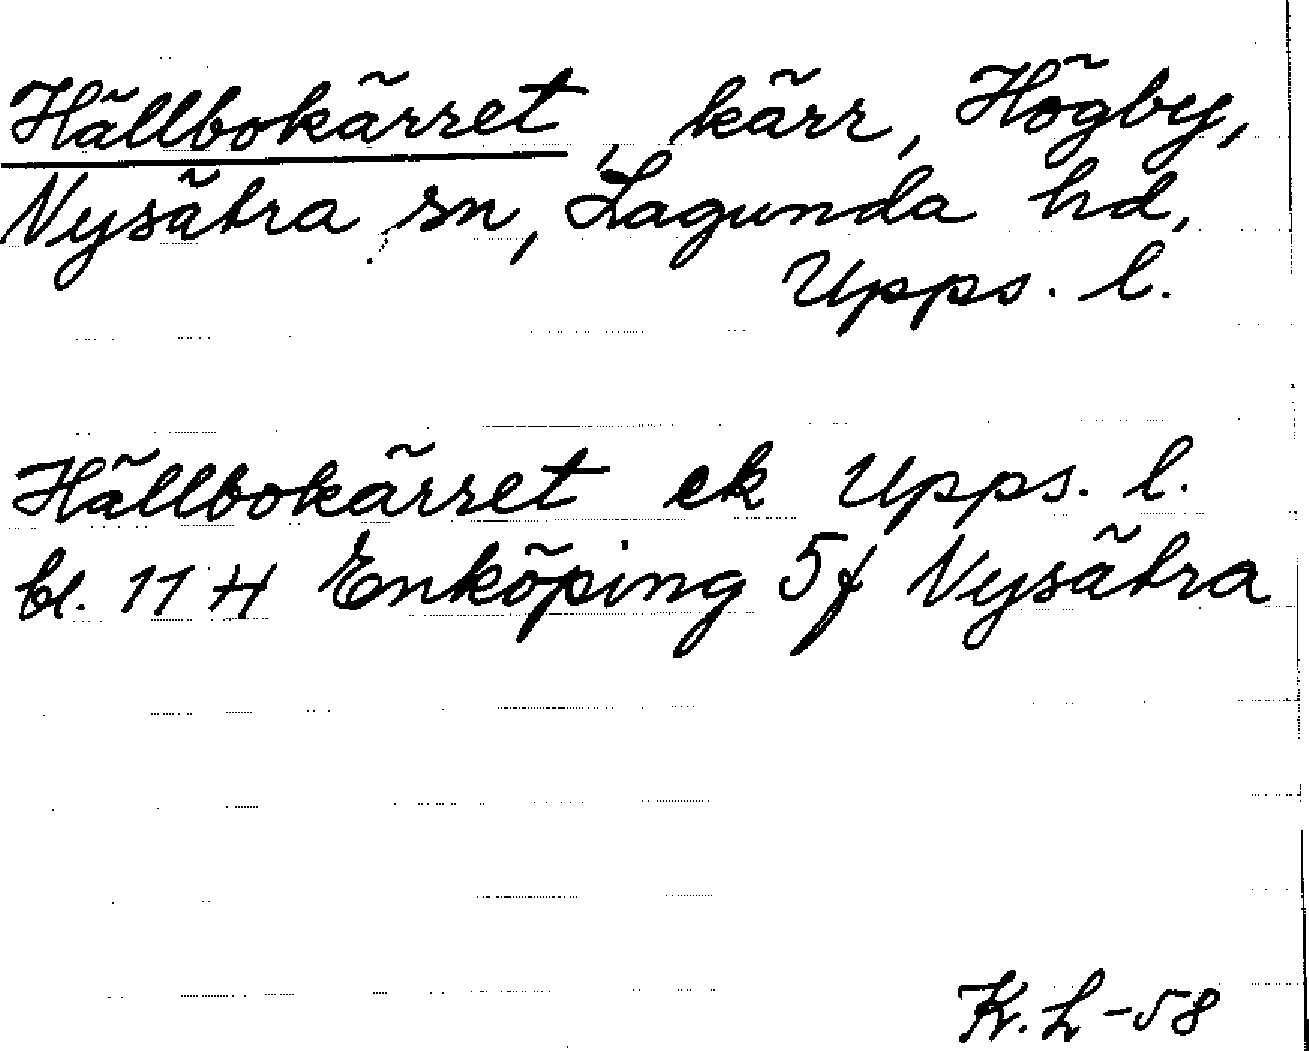 Hällbokärret, kärr, Högby,
Nysätra sn, Lagunda hd,
Upps. l.
Hällbokärret ek Upps. l.
bl. 11 H Enköping 5f Nysätra
K. L -58